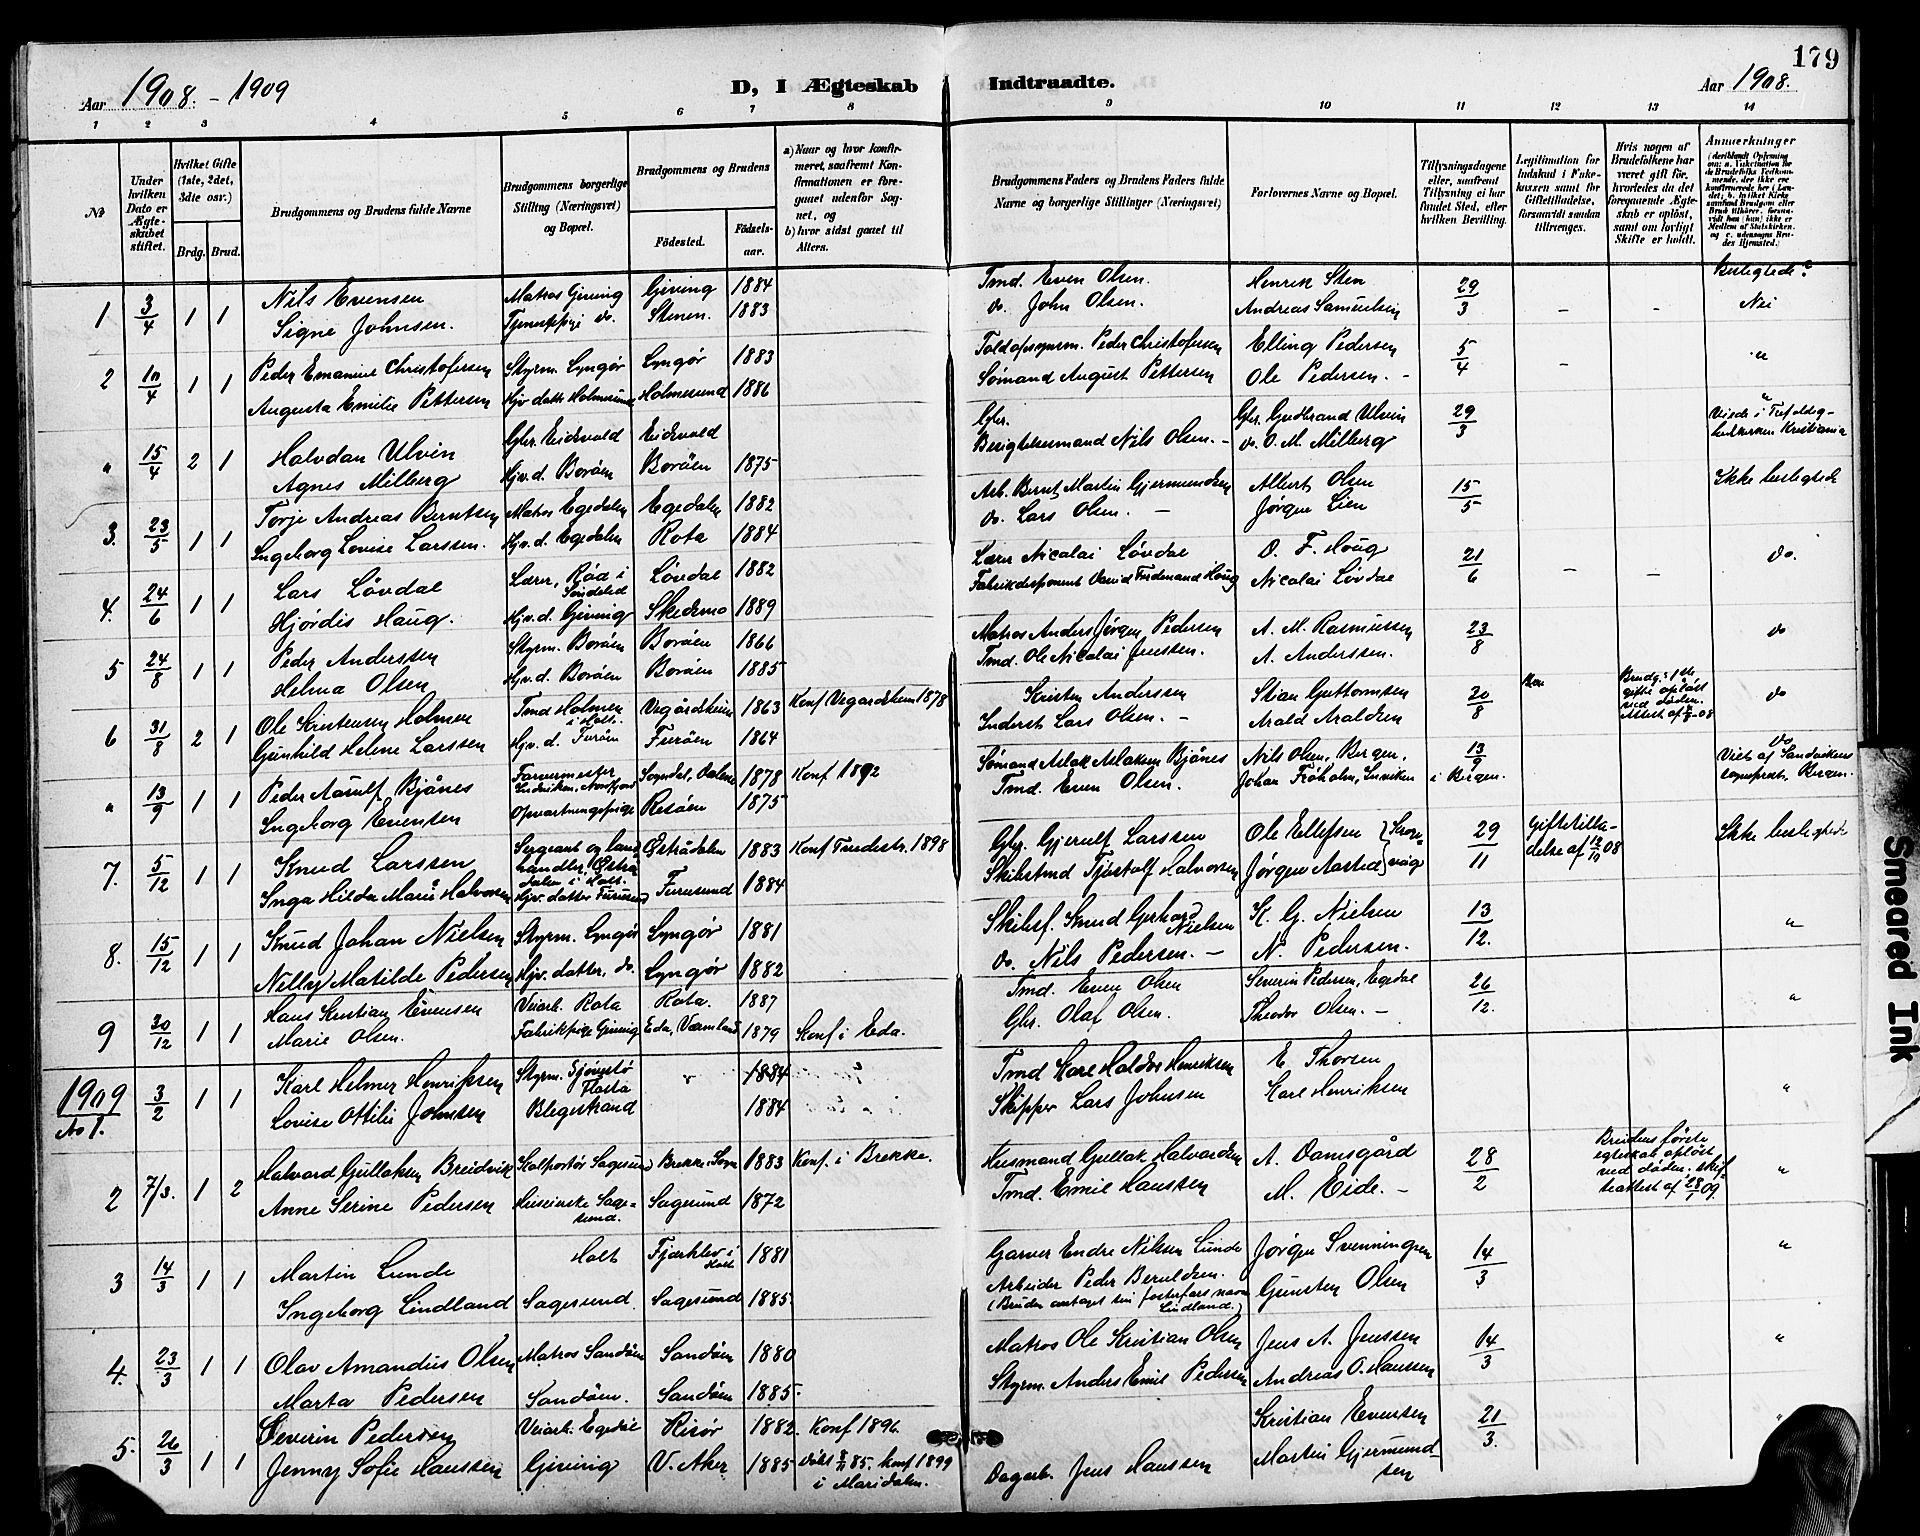 179
Aar 1908.-1909
D, I Ægteskab Indtraadte.
Aar 1908.
1 2 3 4 5 6 7 8 9 10 11 12 13 14
№
Under hvilken Dato er Ægteskabet stiftet.
Hvilket Gifte (1ste, 2det, 3die osv.)
Brdg. Brud.
Brudgommens og Brudens fulde Navne
Brudgommens borgerlige Stilling (Næringsvei) og Bopæl.
Brudgommens og Brudens
Fødested. Fødselsaar.
a) Naar og hvor konfirmeret, saafremt Konfirmationen er foregaaet udenfor Sognet, og
b) hvor sidst gaaet til Alters.
Brudgommens Faders og Brudens Faders fulde Navne og borgerlige Stillinger (Næringsvei)
Forlovernes Navne og Bopæl.
Tillysningsdagene eller, saafremt Tillysning ei har fundet Sted, efter hvilken Bevilling.
Legitimation for Indskud i Enkekassen samt for Giftetilladelse, forsaavidt saadan tiltrænges.
Hvis nogen af Brudefolkene har været gift før, hvorledes da det foregaaende Ægteskab er opløst, samt om lovligt Skifte er holdt.
Anmærkninger
Beslegtede?
1 3/4 1 1 Nils Evensen Matros Giving Giving 1884 Tmd. Even Olsen. Henrik Sten 29/3 - - Nei
Signe Johnsen. Tjenestepige do. Stenen. 1883 do. John Olsen. Andreas Samuelsen
2 10/4 1 1 Peder Emanuel Christofersen Styrm. Lyngør Lyngør 1883 Toldopsynsm. Peder Christofersen Elling Pedersen 5/4 - "
Augusta Emilie Pettersen Hjv. datt. Holmesund Holmesund 1886 Sømand August Pettersen Ole Pedersen. -
" 15/4 2 1 Halvdan Ulvin Gbr. Eidsvold Eidsvold Gbr. Gbr. Gudbrand Ulvin 29/3 Viede i Trefoldighedskirken Kristiania
Agnes Milberg Hjv.d. Borøen Borøen 1875 Besigtelsesmand Nils Olsen. - do. O. M. Milberg
3. 23/5 1 1 Torje Andreas Berntsen Matros Egedalen Egedalen 1882 Arb. Bernt Martin Gjermundsen Albert Olsen 15/5 Ikke beslegtede
Ingeborg Lovise Larssen. Hjv.d. Egedalen Rota 1884 do. Lars Olsen. - Jørgen Lien
4. 24/6 1 1 Lars Løvdal Lærer, Rød i Søndeled Løvdal 1882 Lærer Nicolai Løvdal O. F. Houg 21/6 - - do.
Hjørdis Haug. Hjv.d. Giving Skedsmo 1889 Fabrikdisponent David Ferdinand Houg Nicolai Løvdal
5 24/8 1 1 Peder Anderssen Styrm. Borøen Borøen 1866 Matros Anders Jørgen Pedersen A. M. Rasmussen 23/8 do
Helma Olsen Hjv.d. Borøen Borøen 1885 Tmd. Ole Nicolai Jenssen. A. Anderssen.
6 31/8 2 1 Ole Kristensen Holmen Tmd Holmen i Holt. Vegårdsheien 1863 Konf Vegardsheien 1878 Kristen Anderssen Stian Guttormsen 20/8 Brudg: 1ste gifte opløst ved døden. do
Gunhild Helene Larssen Hjv.d. Furøen Furøen 1864 Inderst Lars Olsen. - Arald Araldsen
" 13/9 1 1 Peder Aarulf Bjånes Farvermester Nordfjord Sogndal, Dalene 1878 Konf 1892 Sømand Aslak Aslaksen Bjånes Nils Olsen, Bergen, 13/9 i Bergen. do Viet af Sandvikens sogneprest, Bergen.
Ingeborg Evensen Opvartningspige Risøen 1875 Tmd. Even Olsen. Johan Frøholm,
7. 5/12 1 1 Knud Larssen Sergeant og landhandler, Østrådalen i Holt. Østrådalen 1883 Konf Tvedestr. 1898 Gbr. Gjerulf Larssen Ole Ellefsen 29/11 Giftetilladelse af 12/11 08 Ikke beslegtede
Inga Hilda Marie Halvorsen Hjv. datter Furesund Furesund 1884 Skibstmd Tjøstolf Halvorsen Jørgen Aasted
8. 15/12 1 1 Knud Johan Nielsen Styrm. Lyngør Lyngør 1881 Skibsf. Knud Gerhard Nielsen K. G. Nielsen 13/12. "
Nelly Matilde Pedersen Hjv. datter, do. Lyngør 1882 do. Nils Pedersen. - N. Pedersen.
9 30/12 1 1 Hans Kristian Evensen Veiarb. Rota Rota. 1887 Tmd. Even Olsen Severin Pedersen, Egedal 26/12. "
Marie Olsen. Fabrikpige Giving Eda, Værmland 1879 Konf i Eda. Gbr. Olaf Olsen. Theodor Olsen. -
1909
No 1. 3/2 1 1 Karl Helmer Henriksen Styrm. Gjøngstø Flosta 1884 Tmd Karl Haldor Henriksen E Thorsen "
Lovise Ottilie Johnsen Blegestrand 1884 Skipper Lars Johnsen Karl Henriksen
2 7/3. 1 2 Halvard Gullaksen Breidvik Kolportør Sagesund Brekke, Sogn 1883 Konf. i Brekke. Husmand Gullak Halvorsen A. Damsgård 28/2 Brudens første egteskab opløst ved døden. skifteattest af 28/1 09 "
Anne Serine Pedersen Huseierske Sagesund. Sagesund 1872 Tmd. Emil Hanssen M. Eide. -
3 14/3 1 1 Martin Lunde Holt Fjærkleiv i Holt 1881 Garver Endre Nilsen Lunde Jørgen Svenningsen 14/3 "
Ingeborg Lindland Sagesund. Sagesund 1885. Arbeider Peder Beruldsen. (Bruden antaget sin fosterfars navn Lindland.) Gunsten Olsen
4. 23/3 1 1 Olav Amandus Olsen Matros Sandøen Sandøen 1880 Matros Ole Kristian Olsen Jens A. Jenssen 14/3 "
Marta Pedersen Sandøen. Sandøen 1885. Styrm. Anders Emil Pedersen Andreas O. Hanssen
5. 26/3 1 1 Severin Pedersen Veiarb. Egedal Risør 1882. Konf 1896. Kristian Evensen 21/3. "
Jenny Sofie Hanssen Giving V. Aker 1885 Døbt 8/11 85. Konf 1899 i Maridalen. Dagarb. Jens Hanssen Martin Gjermundsen
Smeared Ink